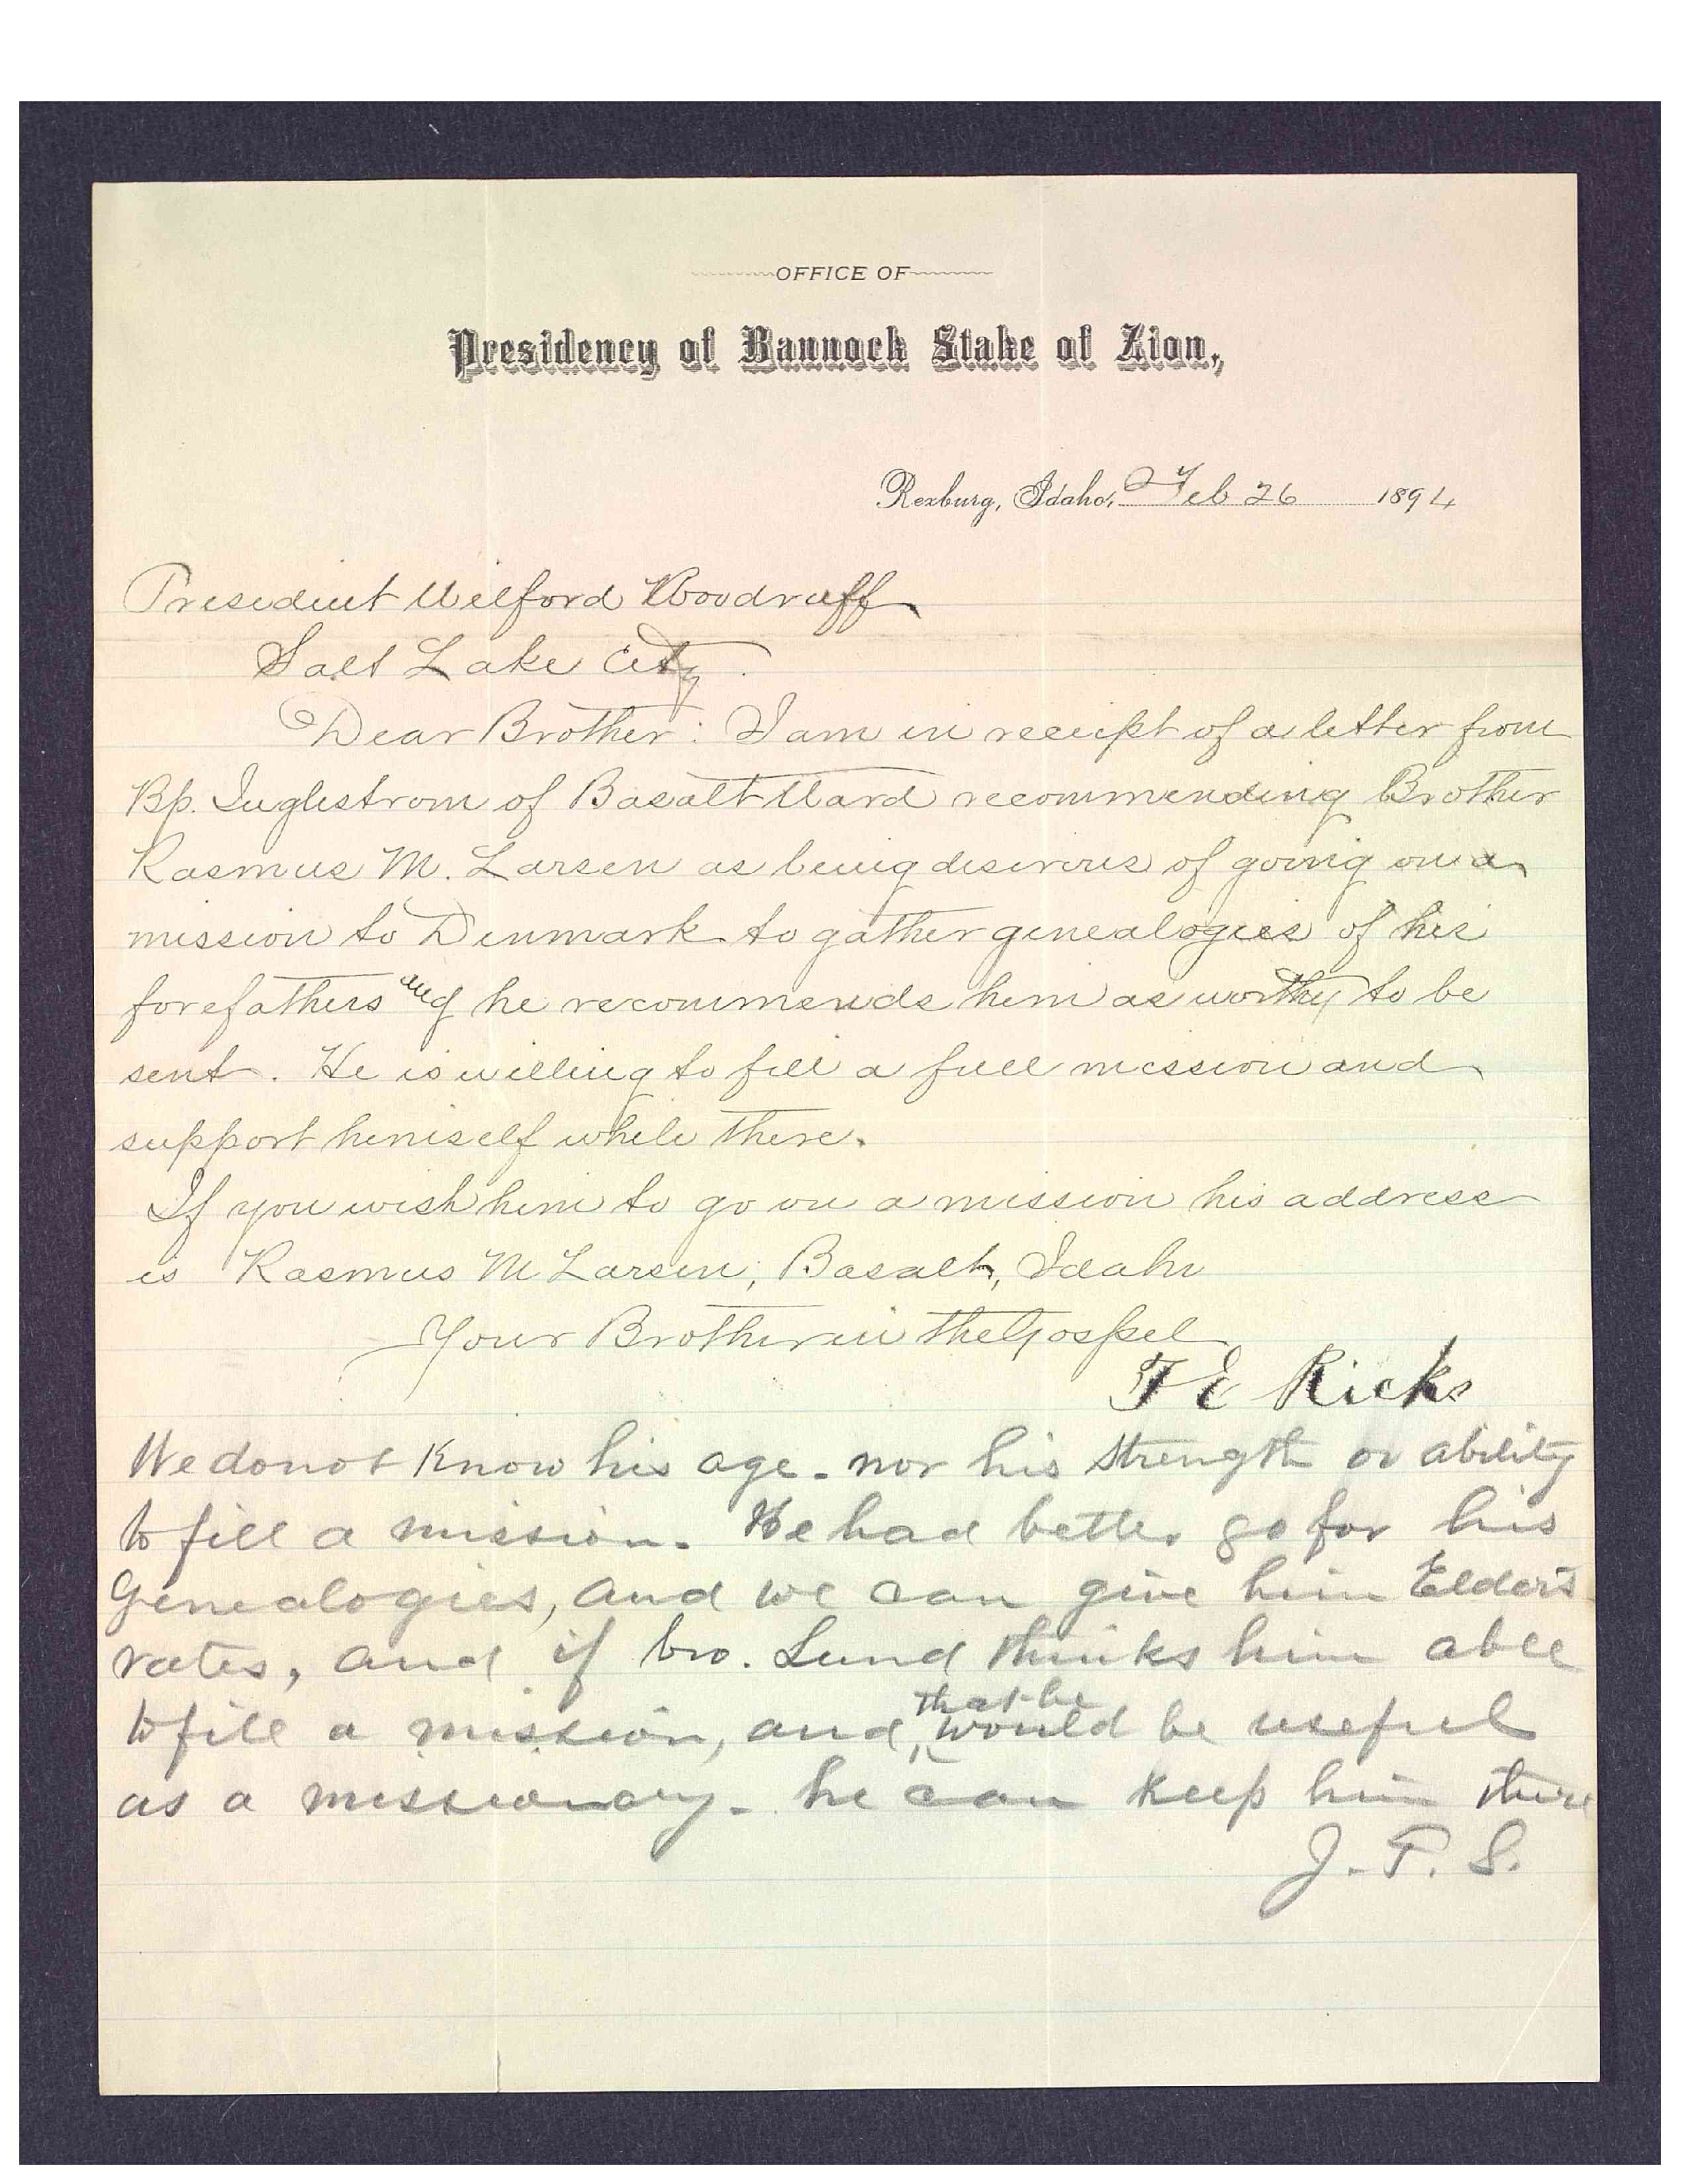 OFFICE OF
Presidency of Bannock Stake of Zion,
Rexburg, Idaho, Feb 26 1894
President Wilford Woodruff
Salt Lake City.
Dear Brother: I am in receipt of a letter from
Bp. Inglestrom of Basalt Ward recommending Brother
Rasmus M. Larsen as being desirous of going on a
mission to Denmark to gather genealogies of his
forefathers and he recommends him as worthy to be
sent. He is willing to fill a full mission and
support himself while there.
If you wish him to go on a mission his address
is Rasmus M Larsen, Basalt, Idaho
Your Brother in the Gospel
T E Ricks
We do not know his age - nor his strength or ability
to fill a mission. He had better go for his
Genealogies, and we can give him Elder's
rates, and if bro. Lund thinks him able
to fill a mission, and that he would be useful
as a missionary - he can keep him there
J. F. S.